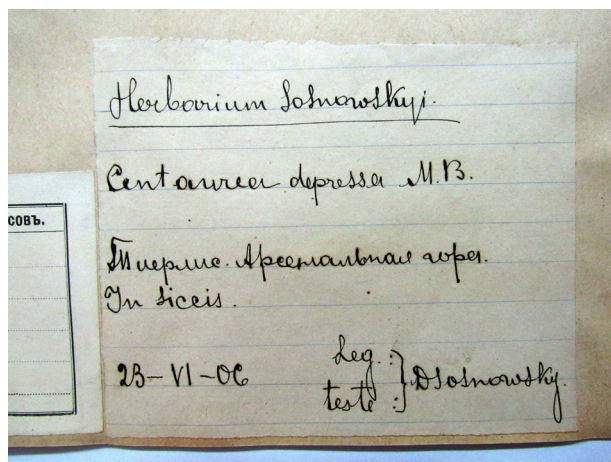 Herbarium Sosnowskyi.
Centaurea depressa M.B.
совъ.
Тифлис. Арсенальная гора.
In siccis.
23-VI-06
Leg. :
teste :
} DSosnowsky.